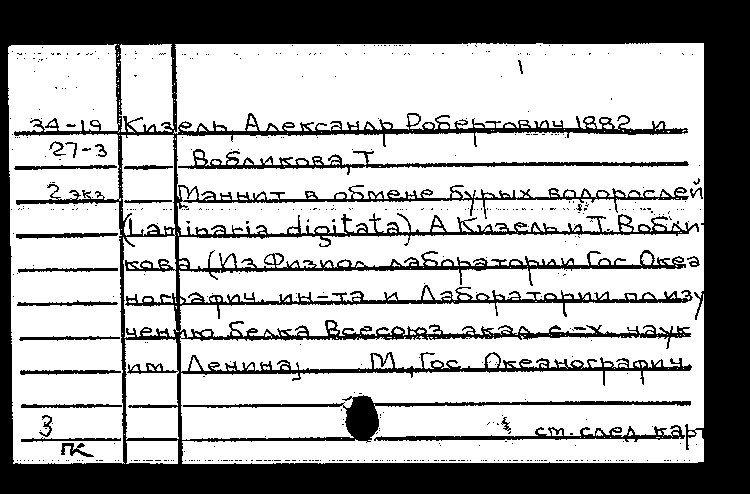 34-19 Кизель, Александр Робертович, 1882 и
27-3 Вобликова, Т
2 экз Маннит в обмене бурых водорослей
(Laminaria digitata). А Кизель и Т. Вобли-
кова. (Из Физиол. лаборатории Гос Океа
нографич. ин-та и Лаборатории по изу
чению белка Всесоюз. акад с.-х. наук
им. Ленина) М., Гос. Океанографич.
3 ст. след. карт
ПК